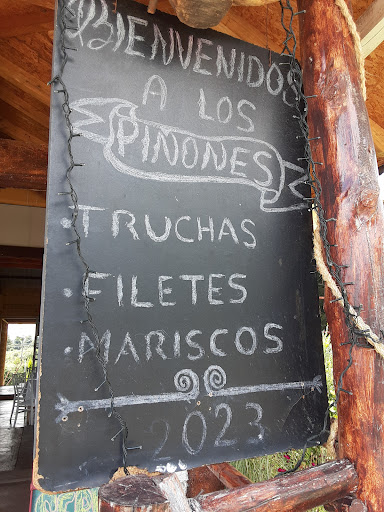 BIENVENIDOS
A LOS
PIÑONES
• TRUCHAS
• FILETES
• MARISCOS
2023